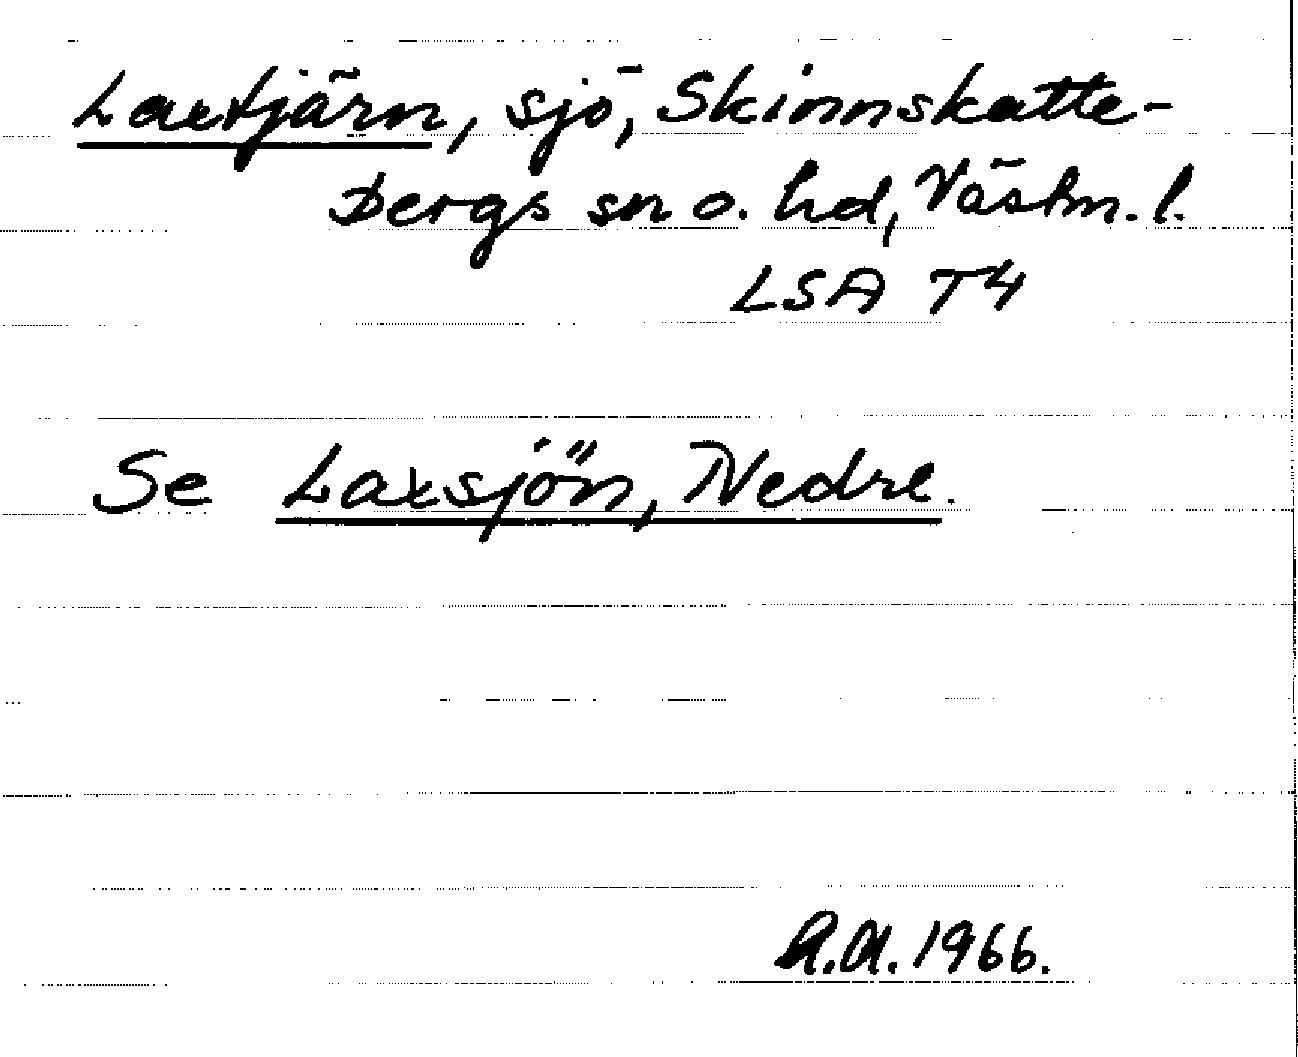 Laxtjärn, sjö, Skinnskatte-
bergs sn o. hd, Västm. l.
LSA T4
Se Laxsjön, Nedre.
A.A. 1966.